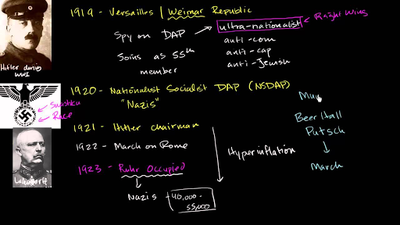 1919 - Versailles | Weimar Republic
Spy on DAP
ultra-nationalist
Right Wing
anti-com
anti-cap
anti-Jewish
Joins as 55th
member
Hitler during
WWI
1920 - Nationalist Socialist DAP (NSDAP)
"Nazis"
Swastika
Race
1921 - Hitler chairman
1922 - March on Rome
1923 - Ruhr Occupied
Nazis
40,000-
55,000
Hyperinflation
Mun
Beer Hall
Putsch
March
Ludendorff